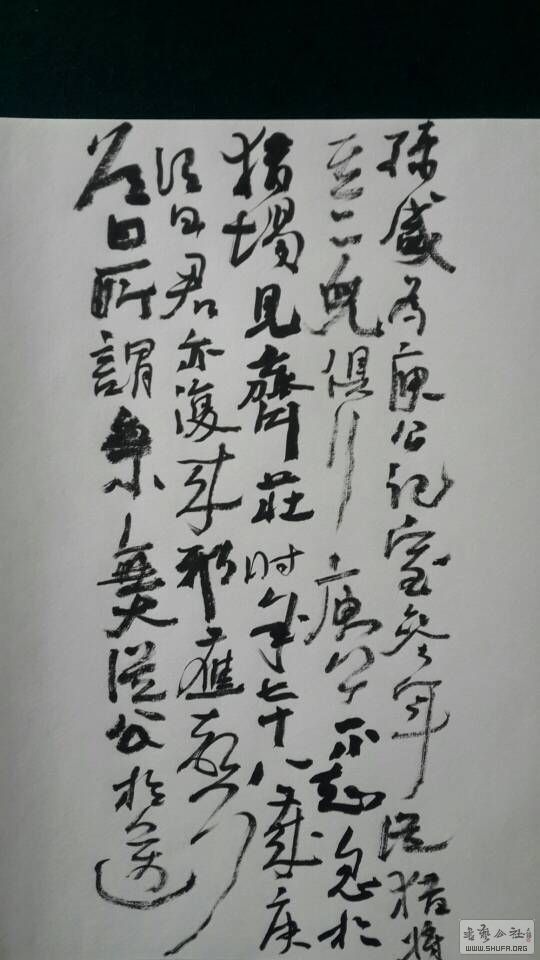 孫盛为庾公记室參軍從猎將
其二兒俱行庾公不知忽於
猎場見齊莊时年七十八歲庾
谓曰君亦復来邪應聲
答曰所謂無小無大從公於邁
書藝公社
WWW.SHUFA.ORG